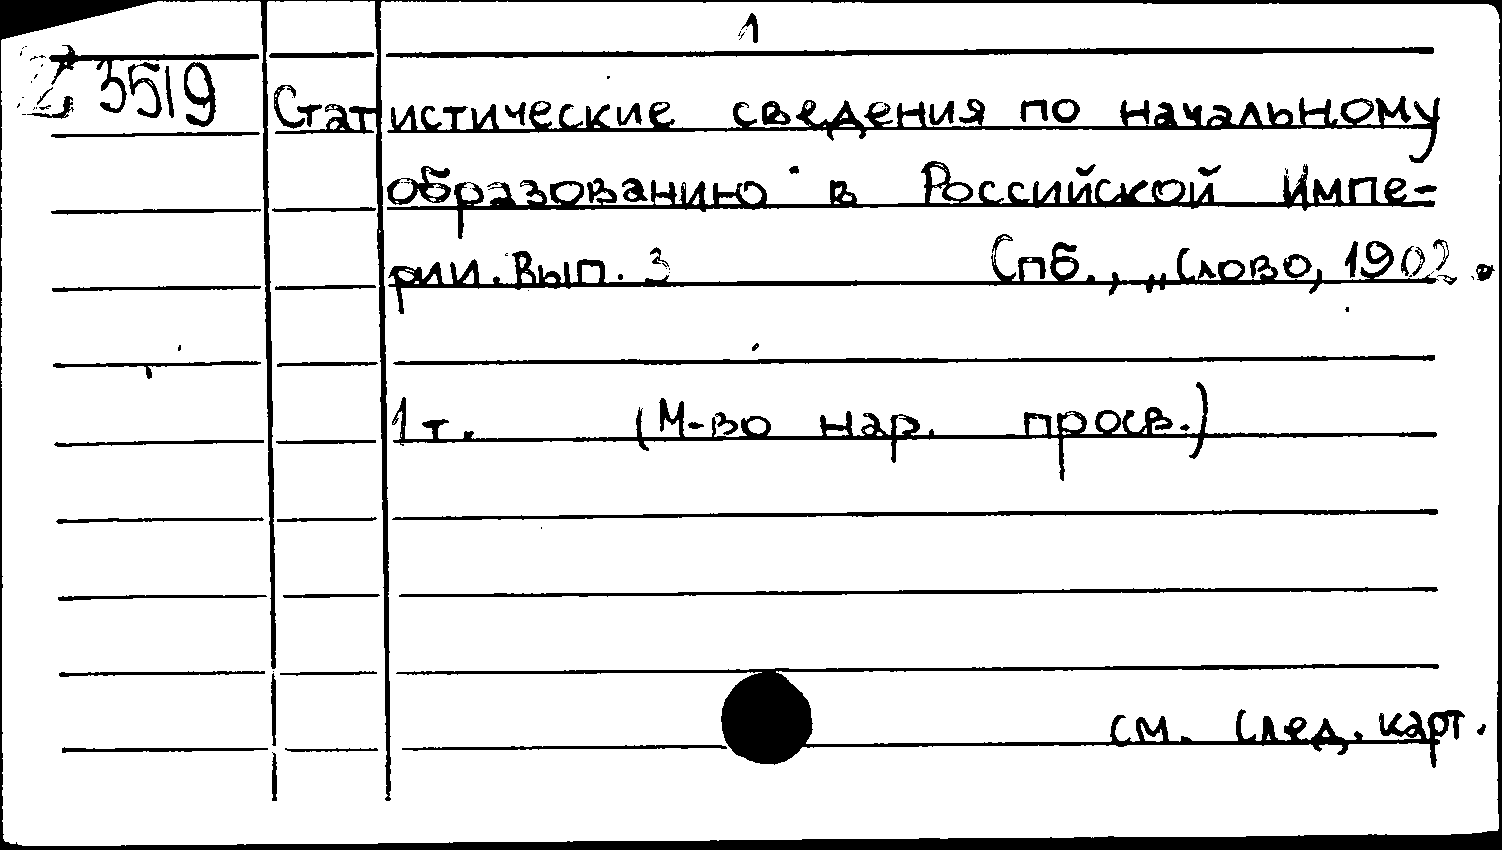 1
Z 3519
Статистические сведения по начальному
образованию в Российской Импе-
рии. Вып. 3 Спб., „Слово, 1902.
1 т. (М-во нар. просв.)
см. след. карт.